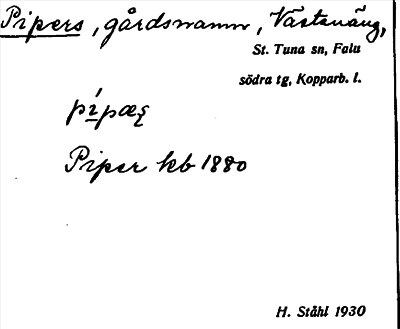 Pipers, gårdsnamn, Västanäng,
St. Tuna sn, Falu
södra tg, Kopparb. l.
pí̲pæş
Piper kb 1880
H. Ståhl 1930